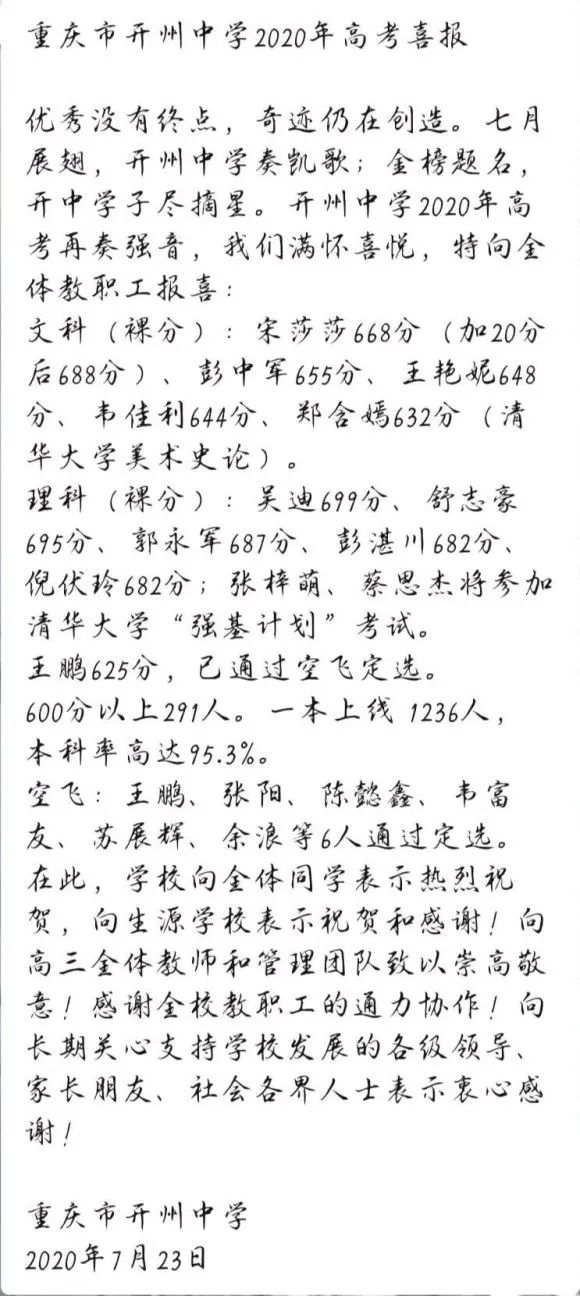 重庆市开州中学2020年高考喜报
优秀没有终点，奇迹仍在创造。七月
展翅，开州中学奏凯歌；金榜题名，
开中学子尽摘星。开州中学2020年高
考再奏强音，我们满怀喜悦，特向全
体教职工报喜：
文科（裸分）：宋莎莎668分（加20分
后688分）、彭中军655分、王艳妮648
分、韦佳利644分、郑含嫣632分（清
华大学美术史论）。
理科（裸分）：吴迪699分、舒志豪
695分、郭永军687分、彭湛川682分、
倪伏玲682分；张梓萌、蔡思杰将参加
清华大学“强基计划”考试。
王鹏625分，已通过空飞定选。
600分以上291人。一本上线 1236人，
本科率高达95.3%。
空飞：王鹏、张阳、陈懿鑫、韦富
友、苏展辉、余浪等6人通过定选。
在此，学校向全体同学表示热烈祝
贺，向生源学校表示祝贺和感谢！向
高三全体教师和管理团队致以崇高敬
意！感谢全校教职工的通力协作！向
长期关心支持学校发展的各级领导、
家长朋友、社会各界人士表示衷心感
谢！
重庆市开州中学
2020年7月23日